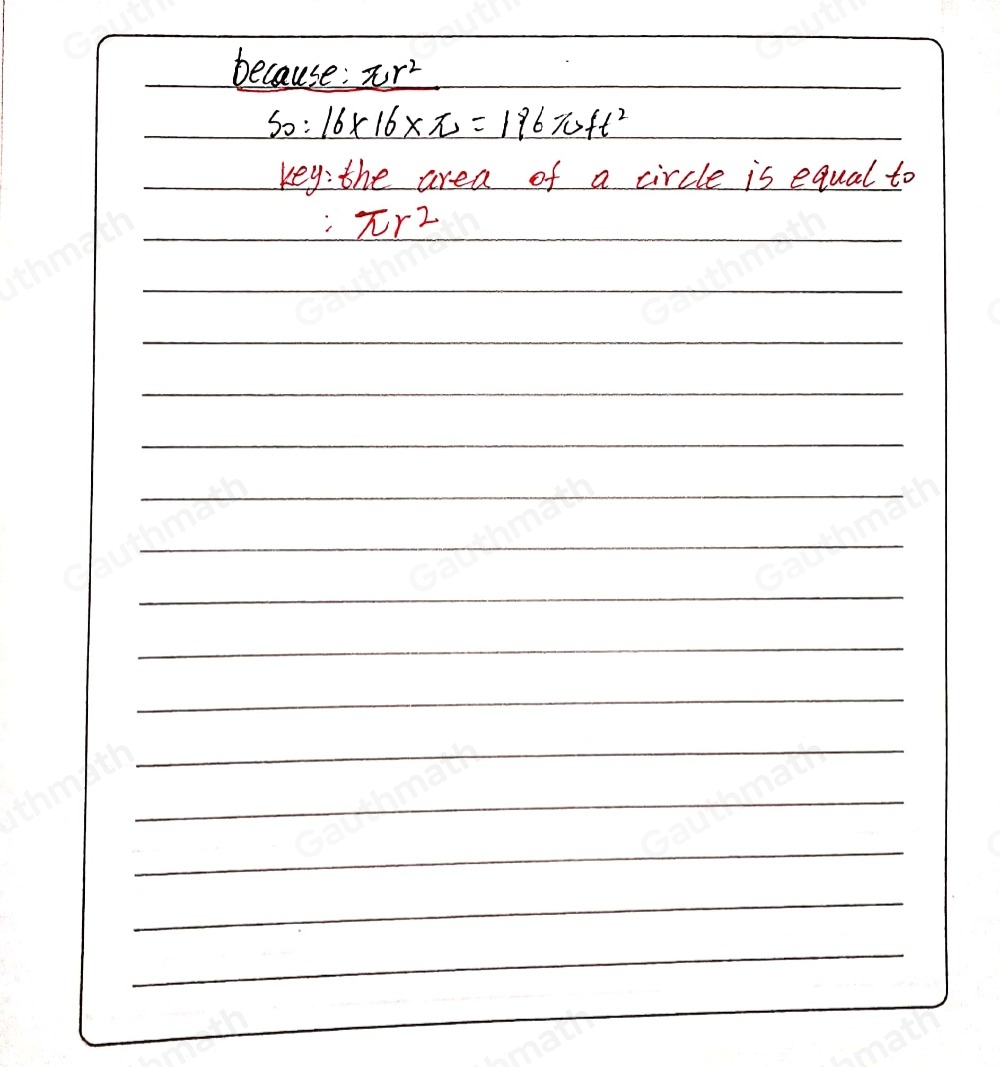 because: πr²
So: 16×16×π = 196πft²
key: the area of a circle is equal to
: πr²
Gauthmath